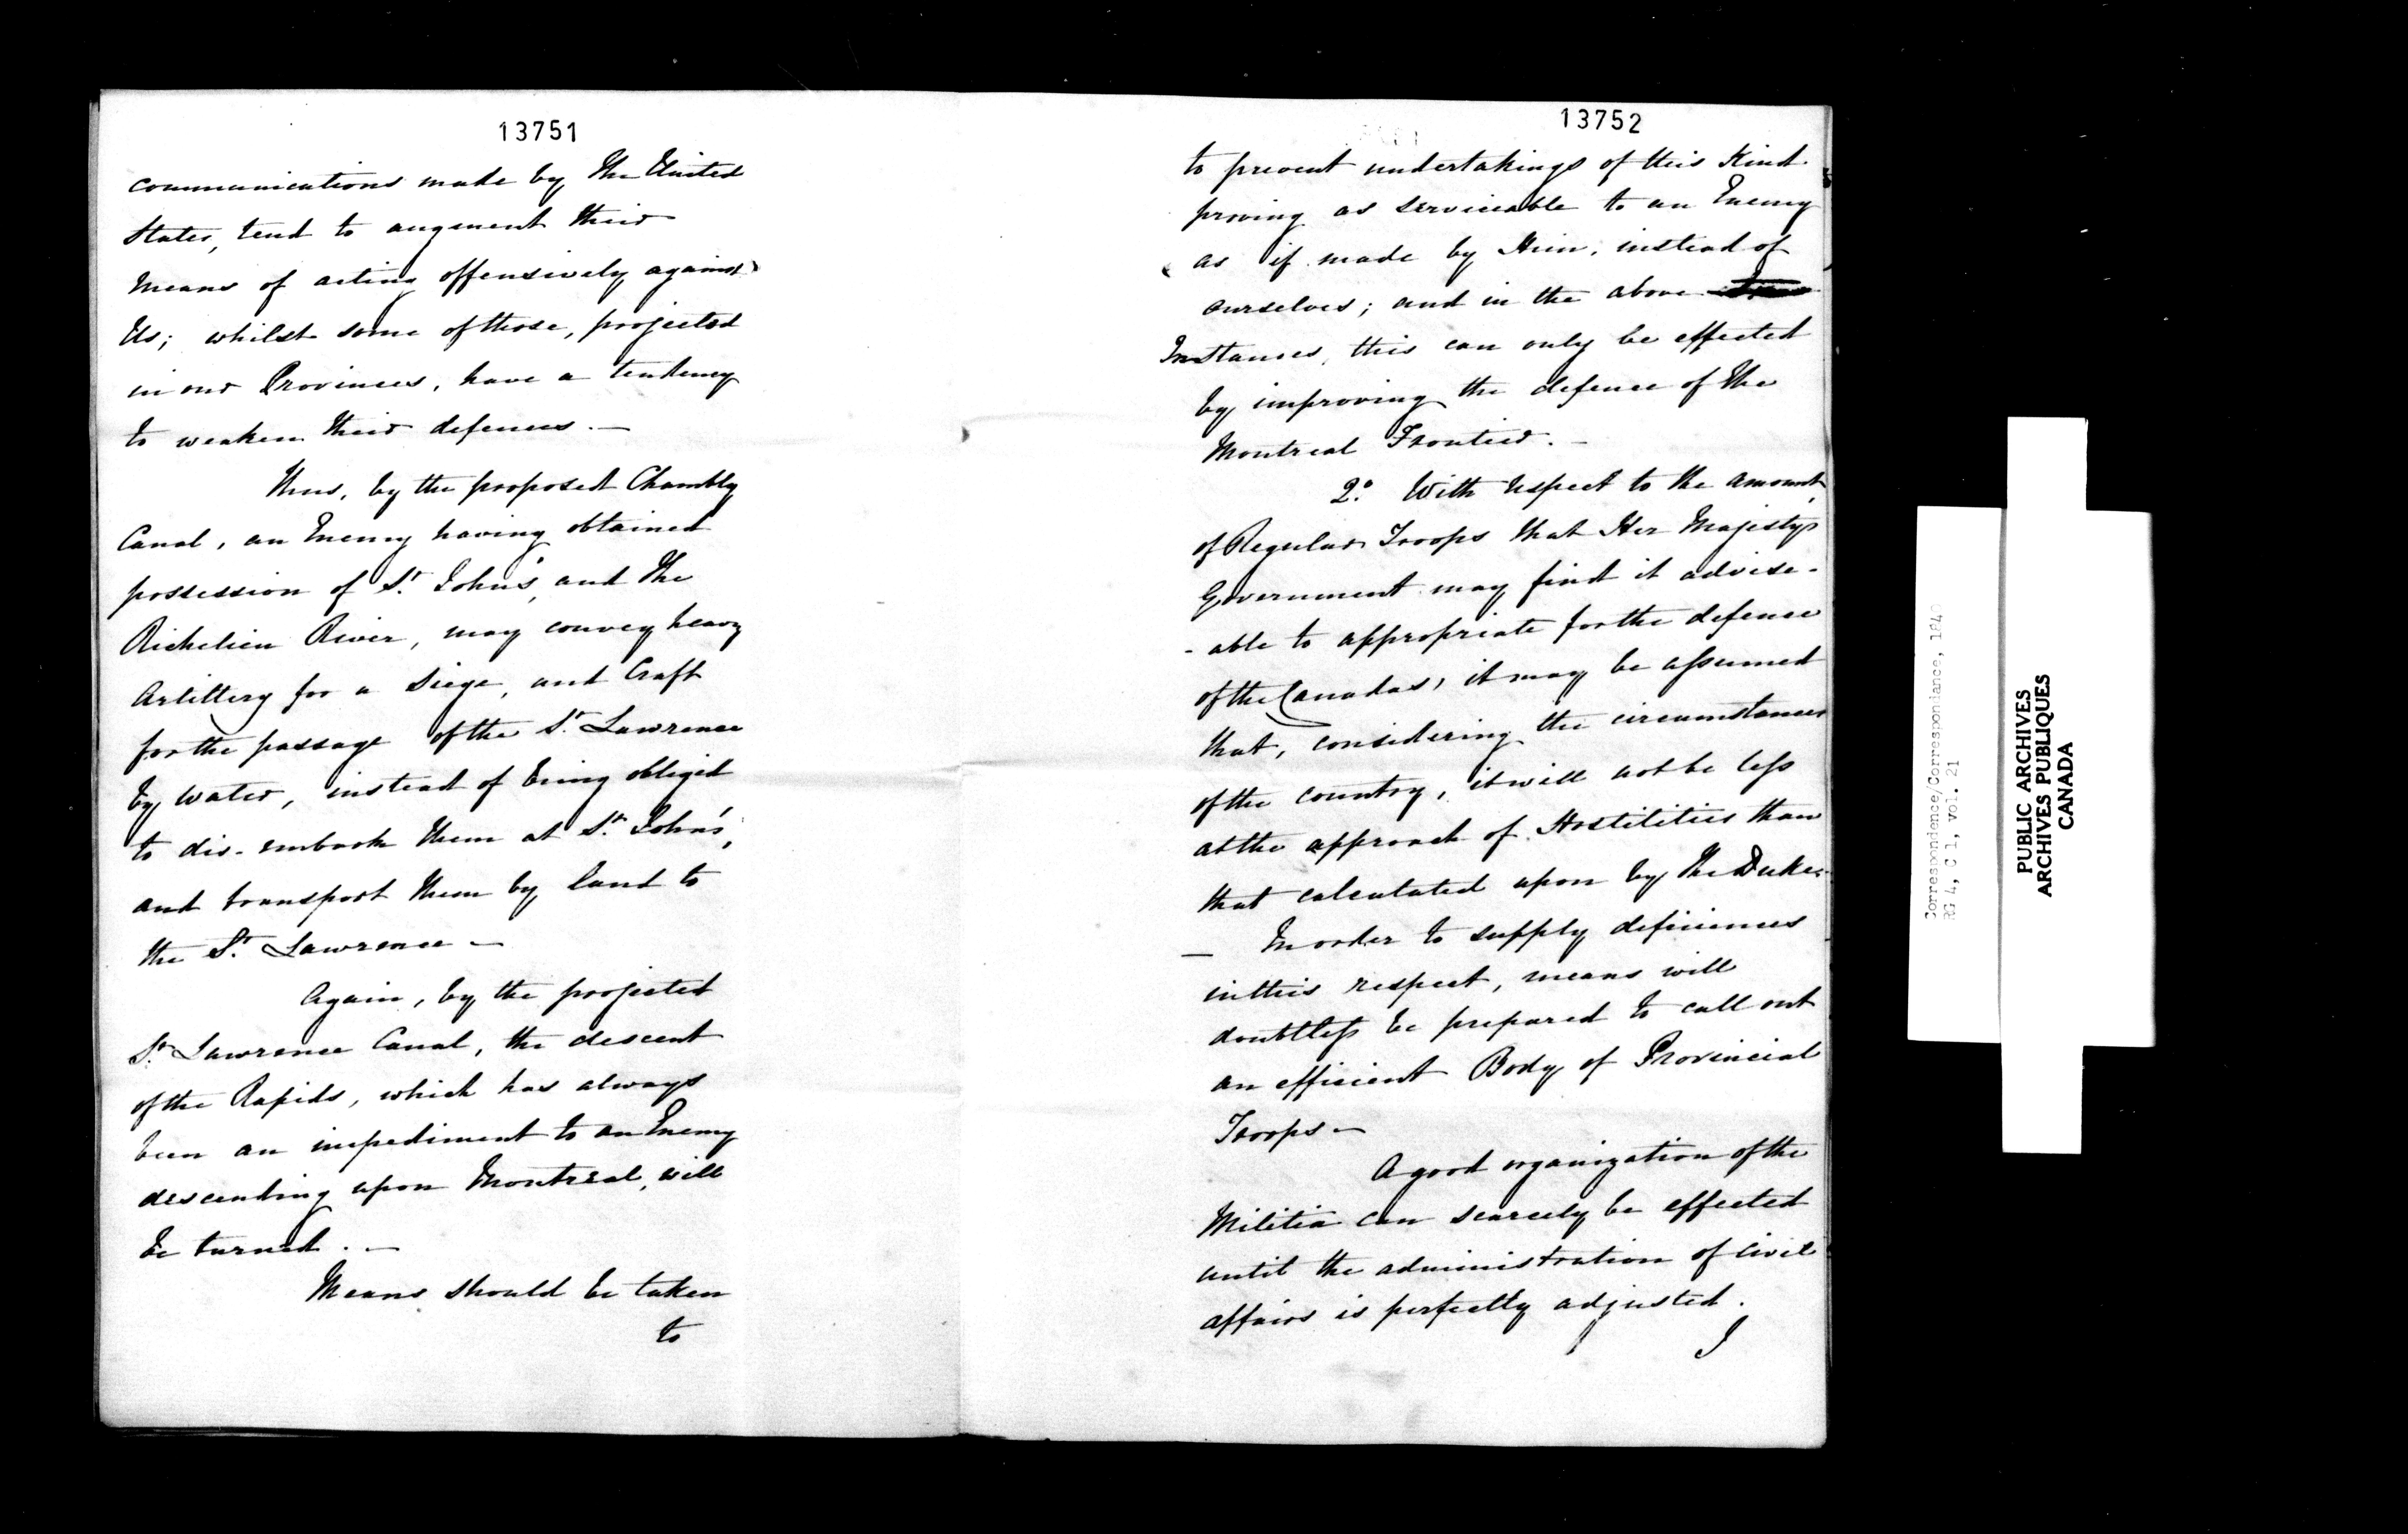 13751
communications made by The United
States, tend to augment their
means of acting offensively against
Us; whilst some of those, projected
in our Provinces, have a tendency
to weaken their defences. —
Thus, by the proposed Chambly
Canal, an Enemy having obtained
possession of St. John's, and The
Richelieu River, may convey heavy
Artillery for a Siege, and Craft
for the passage of the St. Lawrence
by water, instead of being obliged
to dis-embark them at St. John's,
and transport them by land to
the St. Lawrence —
Again, by the projected
St. Lawrence Canal, the descent
of the Rapids, which has always
been an impediment to an Enemy
descending upon Montreal, will
be turned. —
Means should be taken
to
13752
to prevent undertakings of this Kind
proving as serviceable to an Enemy
as if made by Him, instead of
ourselves; and in the above
Instances, this can only be effected
by improving the defence of The
Montreal Frontier. —
2o. With respect to the amount
of Regular Troops that Her Majesty's
Government may find it advise-
-able to appropriate for the defence
of the Canadas, it may be assumed
that, considering the circumstances
of the country, it will not be less
at the approach of Hostilities than
that calculated upon by The Duke.
— In order to supply deficiences
in this respect, means will
doubtless be prepared to call out
an efficient Body of Provincial
Troops —
A good organization of the
Militia can scarcely be effected
until the administration of Civil
affairs is perfectly adjusted.
I
Correspondence/Correspondance, 1840
RG 4, C 1, vol. 21
PUBLIC ARCHIVES
ARCHIVES PUBLIQUES
CANADA